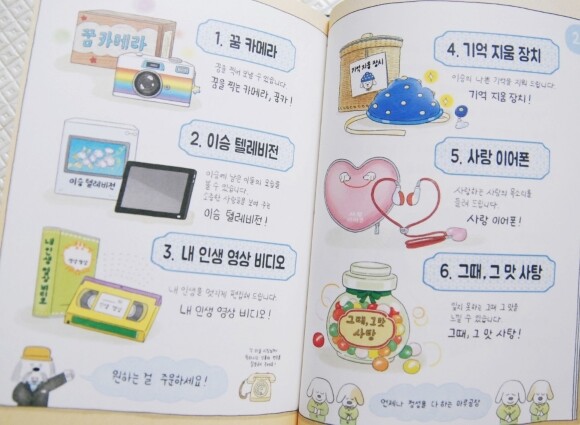 꿈 카메라
1. 꿈 카메라
꿈을 찍어 보낼 수 있습니다.
꿈을 찍는 카메라, 꿈카!
이승 텔레비전
2. 이승 텔레비전
이승에 남은 식물의 모습을
볼 수 있습니다.
이승 텔레비전!
내 인생 영상 비디오
3. 내 인생 영상 비디오
내 인생을 멋지게 편집해 드립니다.
내 인생 영상 비디오!
원하는 걸 주문하세요!
기억 지움 장치
4. 기억 지움 장치
이승의 나쁜 기억을 지워 드립니다.
기억 지움 장치!
5. 사랑 이어폰
사랑하는 사람의 목소리를
들려 드립니다.
사랑 이어폰!
그때, 그 맛
사탕
6. 그때, 그 맛 사탕
잊지 못하는 그때 그 맛을
느낄 수 있습니다.
그때, 그 맛 사탕!
언제나 정성을 다 하는 마루공방
2